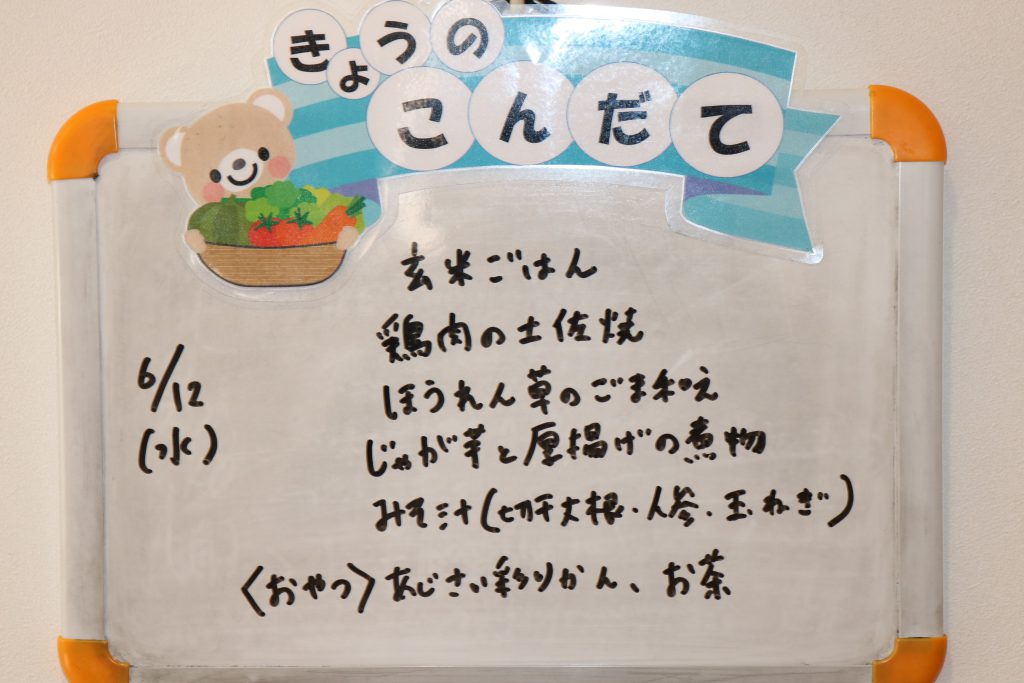 きょうの
こんだて
6/12
(水)
玄米ごはん
鶏肉の土佐焼
ほうれん草のごま和え
じゃが芋と厚揚げの煮物
みそ汁(切干大根・人参・玉ねぎ)
〈おやつ〉あじさい彩りかん、お茶